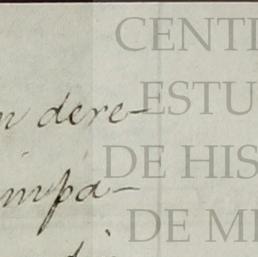 CENT
n dere-
ESTU
DE HIS
mpa-
DE M